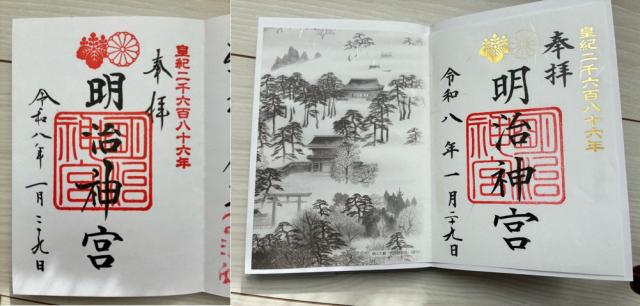 皇紀二千六百八十六年
奉拝
明治神宮
明治神宮
令和八年一月二十九日
皇紀二千六百八十六年
奉拝
明治神宮
明治神宮
令和八年一月二十九日